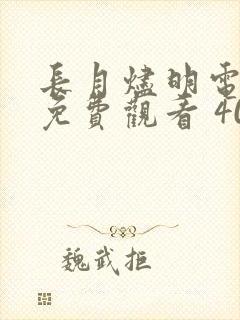 長月燼明電
免費觀看 40
魏武拒